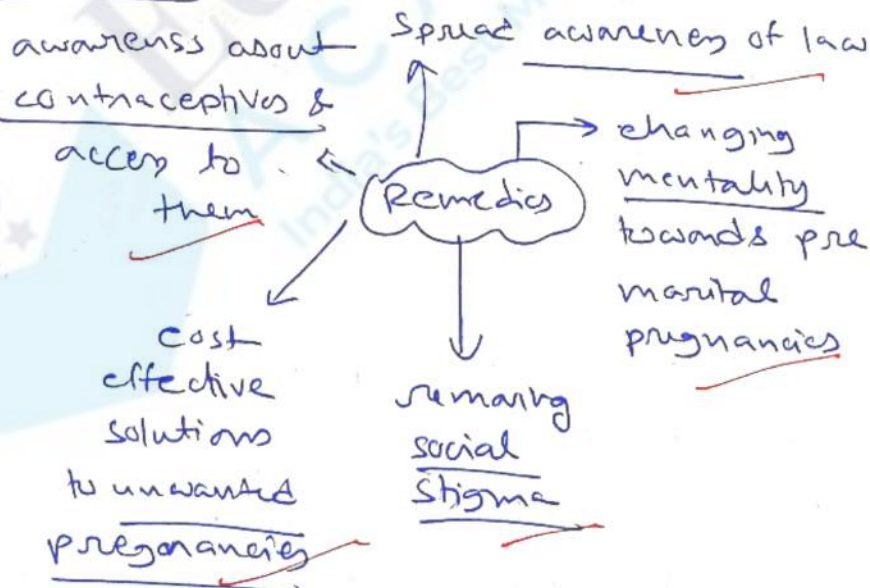 awarenss about
contraceptives &
access to
them
Spread awareness of law
changing
mentality
towards pre
marital
pregnancies
Remedies
cost
effective
solutions
to unwanted
pregnancies
removing
social
stigma